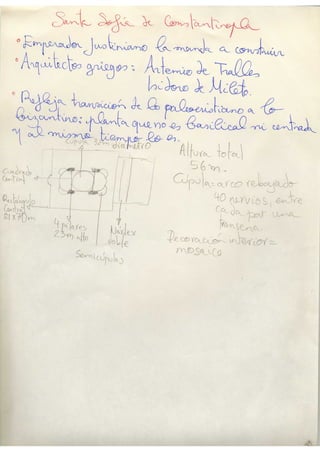 Santa Sofía de Constantinopla
° Emperador Justiniano la manda a construir
° Arquitectos griegos: Artemio de Tralles
Isidoro de Mileto.
° Refleja transición de lo paleocristiano a lo
bizantino: planta que no es basilical ni centrada
y al mismo tiempo lo es.
Cúpula 32m diámetro
Altura total
56m.
Cúpula = arco rebajado
40 nervios, entre
cada par una
Decoración interior =
mosaico
Cuadrado
central
Rectángulo
central
81x70m
4 pilares
23m alto
Nartex
doble
Semicúpulas